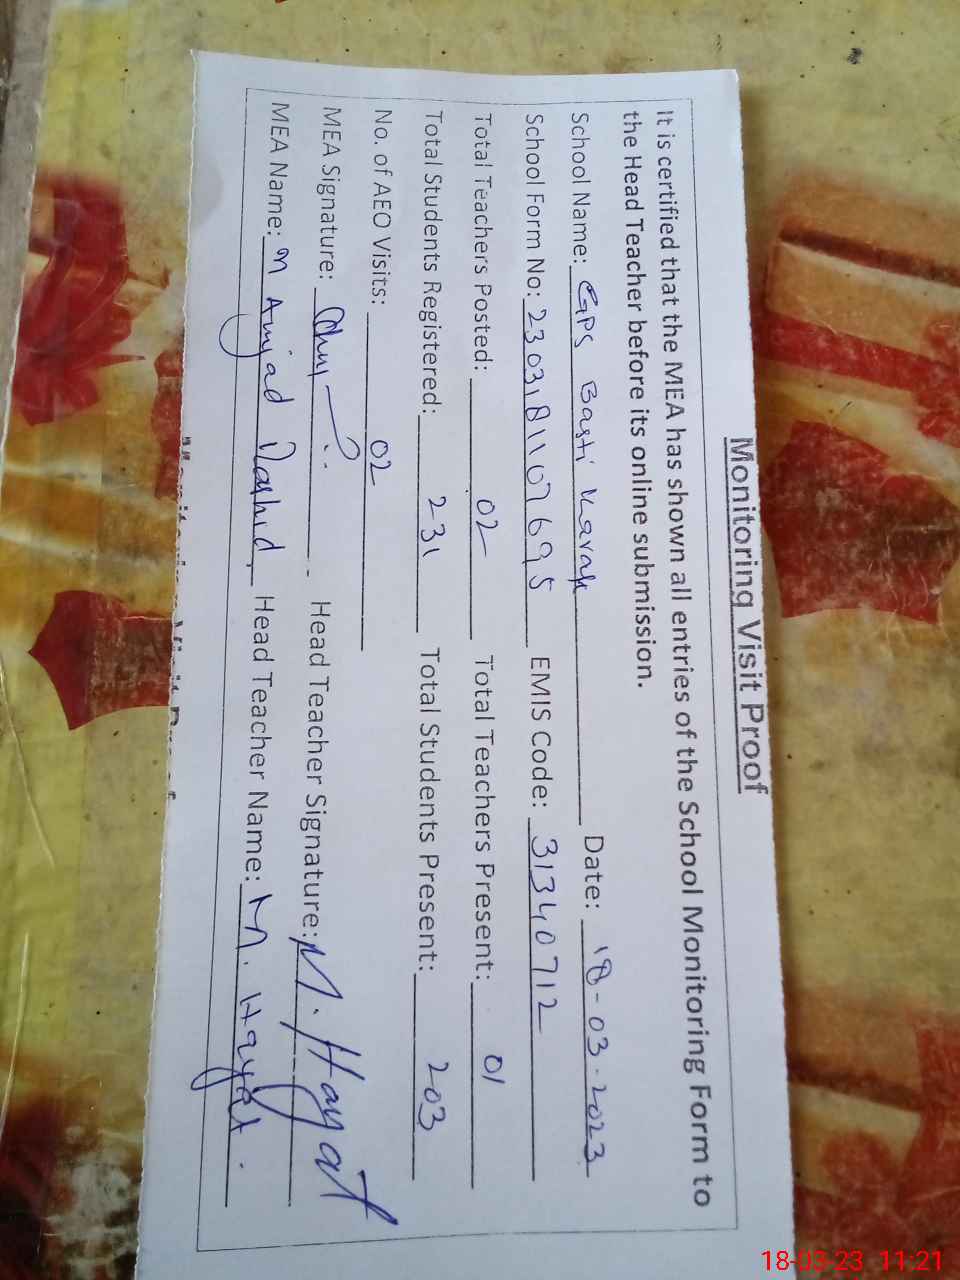 Monitoring Visit Proof
It is certified that the MEA has shown all entries of the School Monitoring Form to
the Head Teacher before its online submission.
School Name: GPS Basti Date: 18-03-2023
School Form No: 2303181107695 EMIS Code: 31340712
Total Teachers Posted: 02 Total Teachers Present: 01
Total Students Registered: 231 Total Students Present: 203
No. of AEO Visits: 02
MEA Signature: Head Teacher Signature: M. Hayat
MEA Name: M Amjad Rashid Head Teacher Name: M. Hayat.
18-03-23 11:21